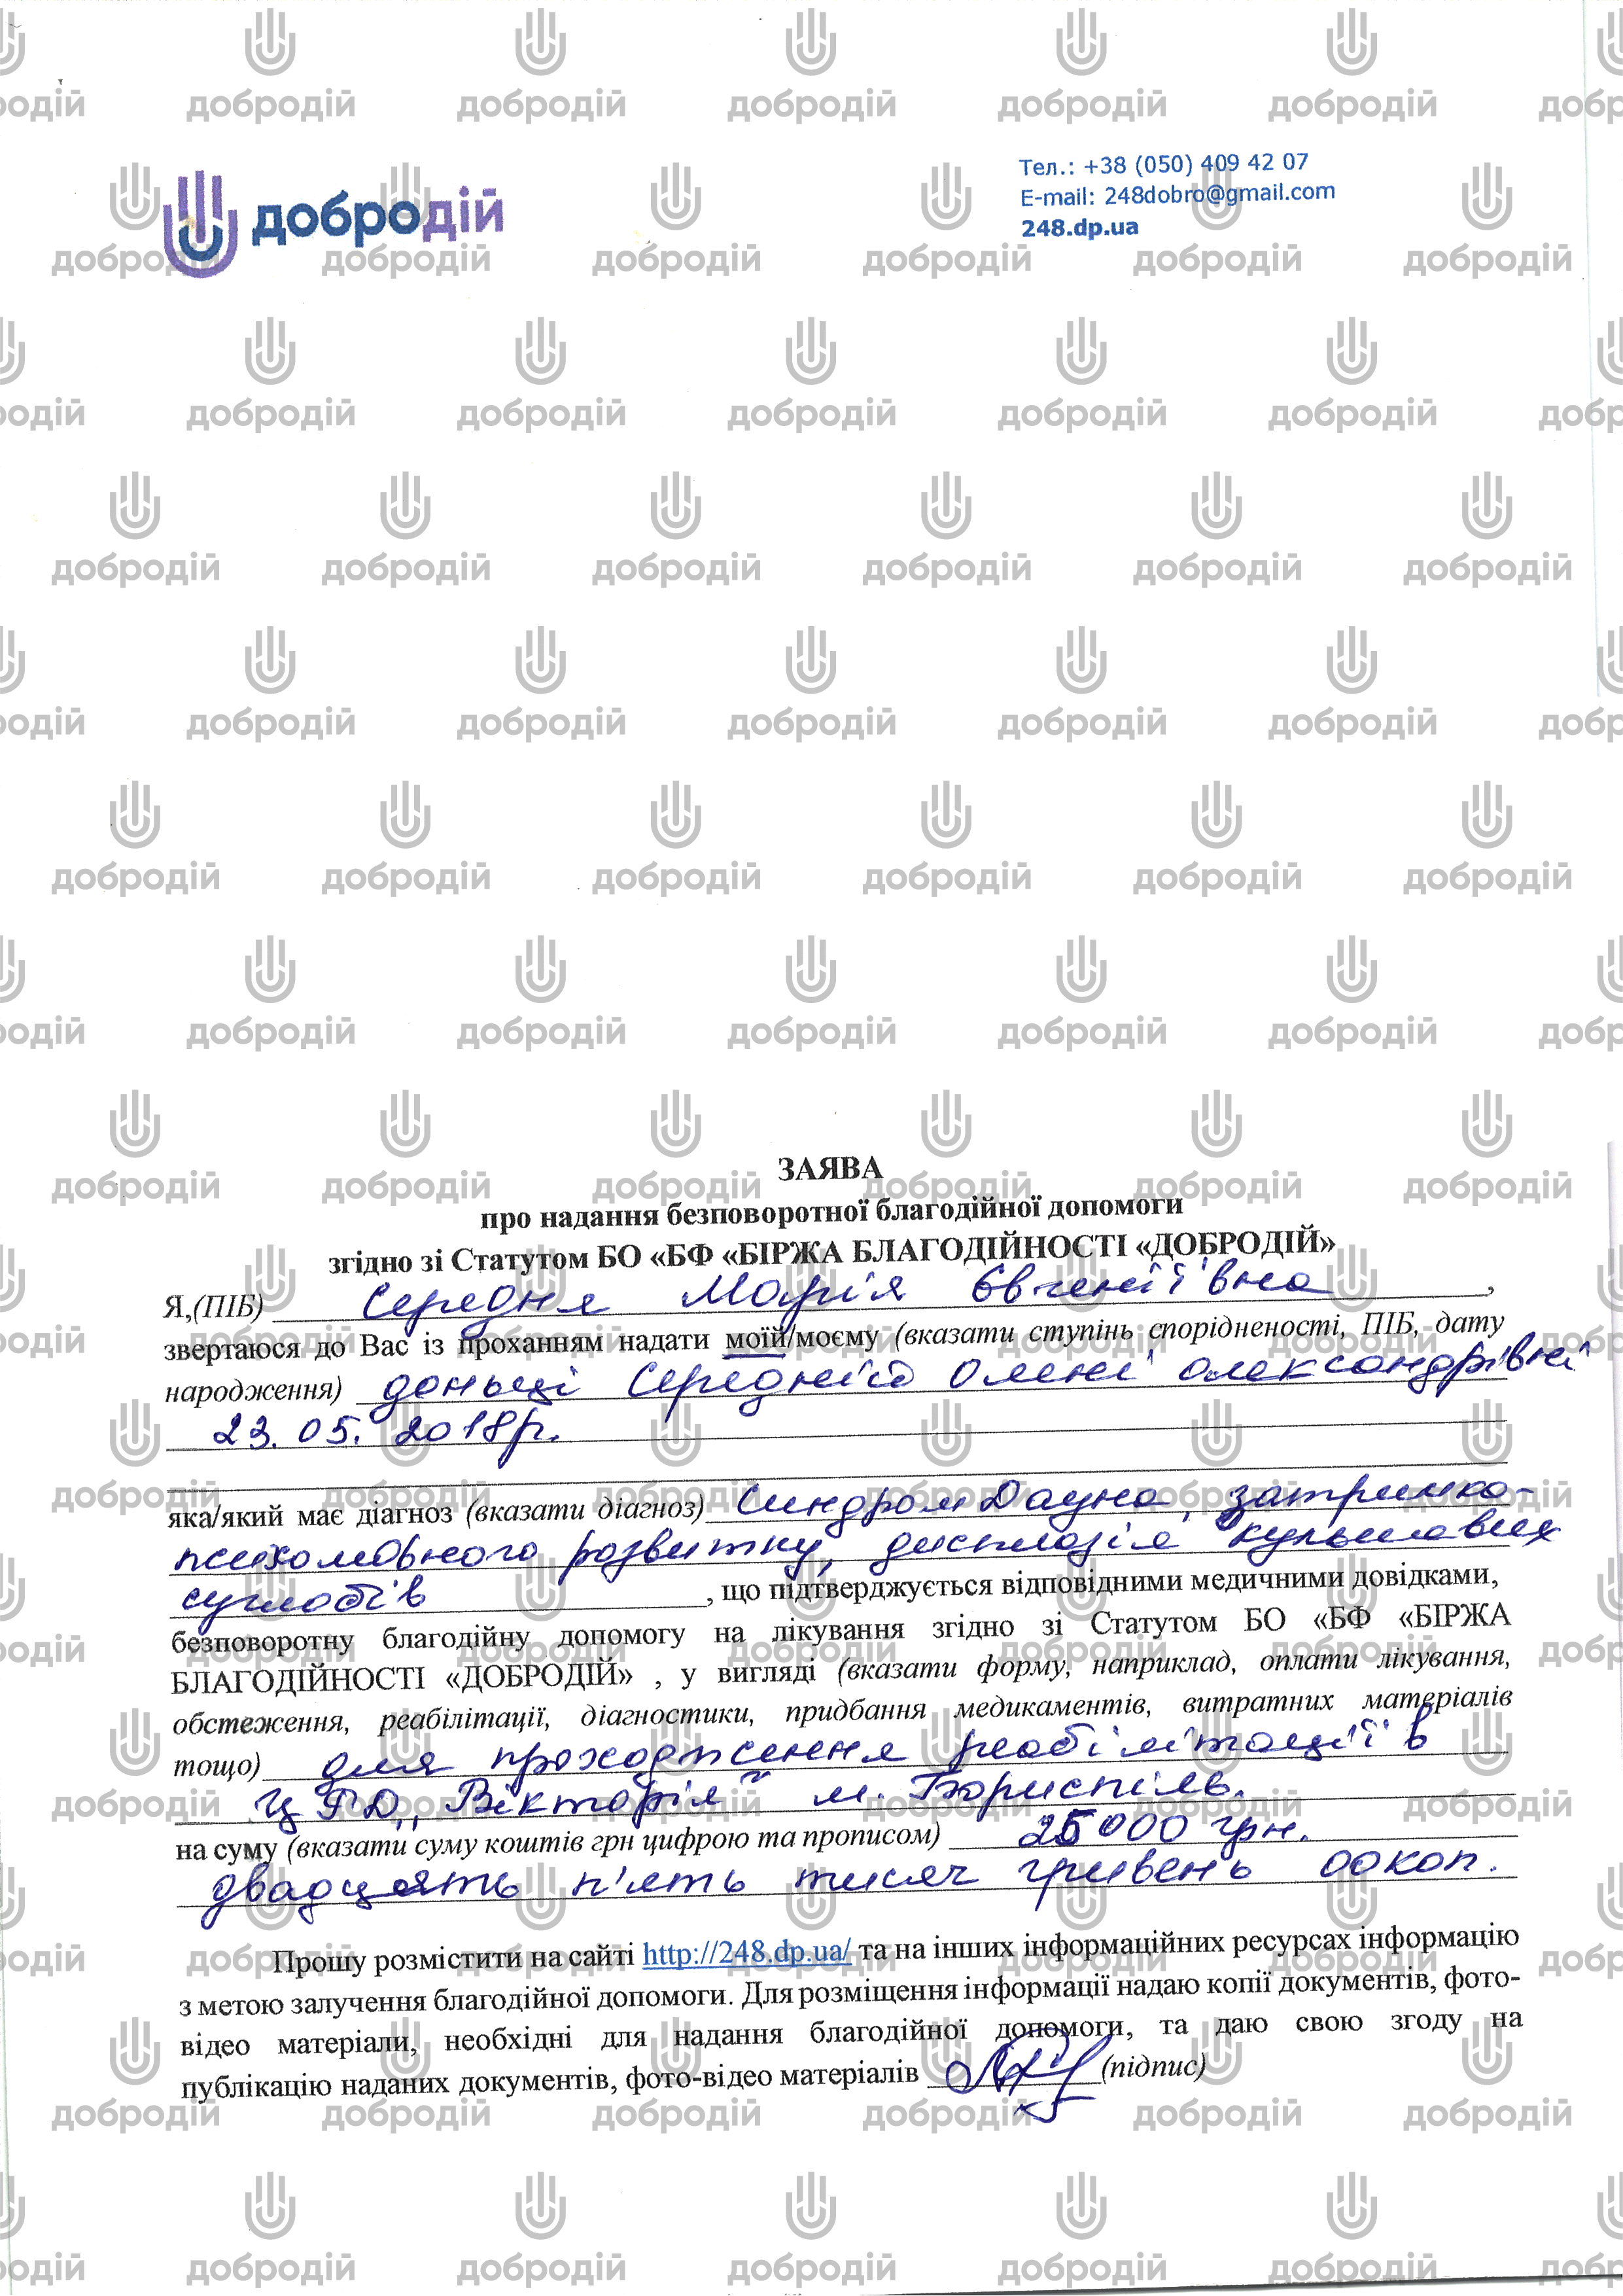 добродій
Тел.: +38 (050) 409 42 07
E-mail: 248dobro@gmail.com
248.dp.ua
ЗАЯВА
про надання безповоротної благодійної допомоги
згідно зі Статутом БО «БФ «БІРЖА БЛАГОДІЙНОСТІ «ДОБРОДІЙ»
Я,(ПІБ) Середня Марія Євгеніївна,
звертаюся до Вас із проханням надати моїй/моєму (вказати ступінь спорідненості, ПІБ, дату
народження) доньці Середній Олені Олександрівні
23.05.2018р.
яка/який має діагноз (вказати діагноз) Синдром Дауна, затримка-
психомовного розвитку, дисплазія кульшових
суглобів, що підтверджується відповідними медичними довідками,
безповоротну благодійну допомогу на лікування згідно зі Статутом БО «БФ «БІРЖА
БЛАГОДІЙНОСТІ «ДОБРОДІЙ» , у вигляді (вказати форму, наприклад, оплати лікування,
обстеження, реабілітації, діагностики, придбання медикаментів, витратних матеріалів
тощо) для проходження реабілітації в
ЦРД „Вікторія" м. Бориспіль.
на суму (вказати суму коштів грн цифрою та прописом) 25000 грн.
двадцять п'ять тисяч гривень 00коп.
Прошу розмістити на сайті http://248.dp.ua/ та на інших інформаційних ресурсах інформацію
з метою залучення благодійної допомоги. Для розміщення інформації надаю копії документів, фото-
відео матеріали, необхідні для надання благодійної допомоги, та даю свою згоду на
публікацію наданих документів, фото-відео матеріалів (підпис)